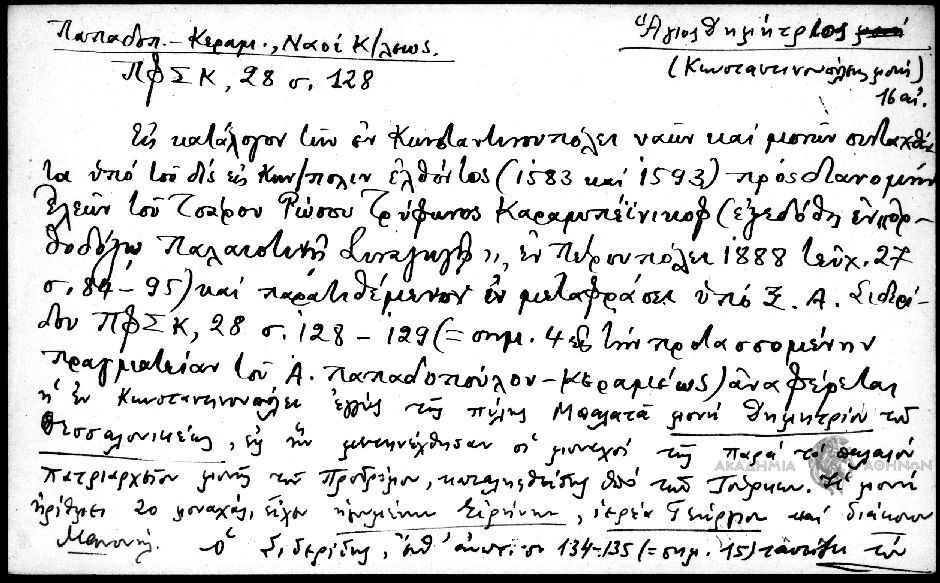 Παπαδοπ.-Κεραμ., Ναοί Κ/λεως.
ΠΦΣΚ, 28 σ. 128
Ἅγιος Δημήτριος μονή
(Κωνσταντινουπόλεως μονή)
16 αἰ.
Εἰς κατάλογον τῶν ἐν Κωνσταντινουπόλει ναῶν καί μονῶν συνταχθέν
τα ὑπό τοῦ δίς εἰς Κων/πολιν ἐλθόντος (1583 καί 1593) πρός διανομήν
ἐλεῶν τοῦ Τσάρου Ρώσσου Τρύφωνος Καραμπέϊνικωφ (ἐξεδόθη ἐν "Ὀρ-
θοδόξῳ Παλαιστινῇ Συναγωγῇ", ἐν Πετρουπόλει 1888 τεῦχ. 27
σ. 84-95) καί παρατιθέμενον ἐν μεταφράσει ὑπό Ξ. Α. Σιδερί-
δου ΠΦΣΚ, 28 σ. 128-129 (= σημ. 4 εἰς τήν προτασσομένην
πραγματείαν τοῦ Ἀ. Παπαδοπούλου-Κεραμέως) ἀναφέρεται
ἡ ἐν Κωνσταντινουπόλει ἐγγύς τῆς πύλης Μπαλατᾶ μονή Δημητρίου τοῦ
Θεσσαλονικέως, εἰς ἥν μετηνέχθησαν οἱ μοναχοί τῆς παρά τό παλαιόν
Πατριαρχεῖον μονῆς τοῦ Προδρόμου, καταληφθείσης ὑπό τῶν Τούρκων. Ἡ μονή
ἠρίθμει 20 μοναχάς, εἶχεν ἡγουμένην Εἰρήνην, ἱερέα Γεώργιον καί διάκονον
Μανουήλ. Ὁ Σιδερίδης, ἔνθ' ἀνωτ. σ. 134-135 (= σημ. 15) ταυτίζει τήν
ΑΚΑΔΗΜΙΑ ΑΘΗΝΩΝ